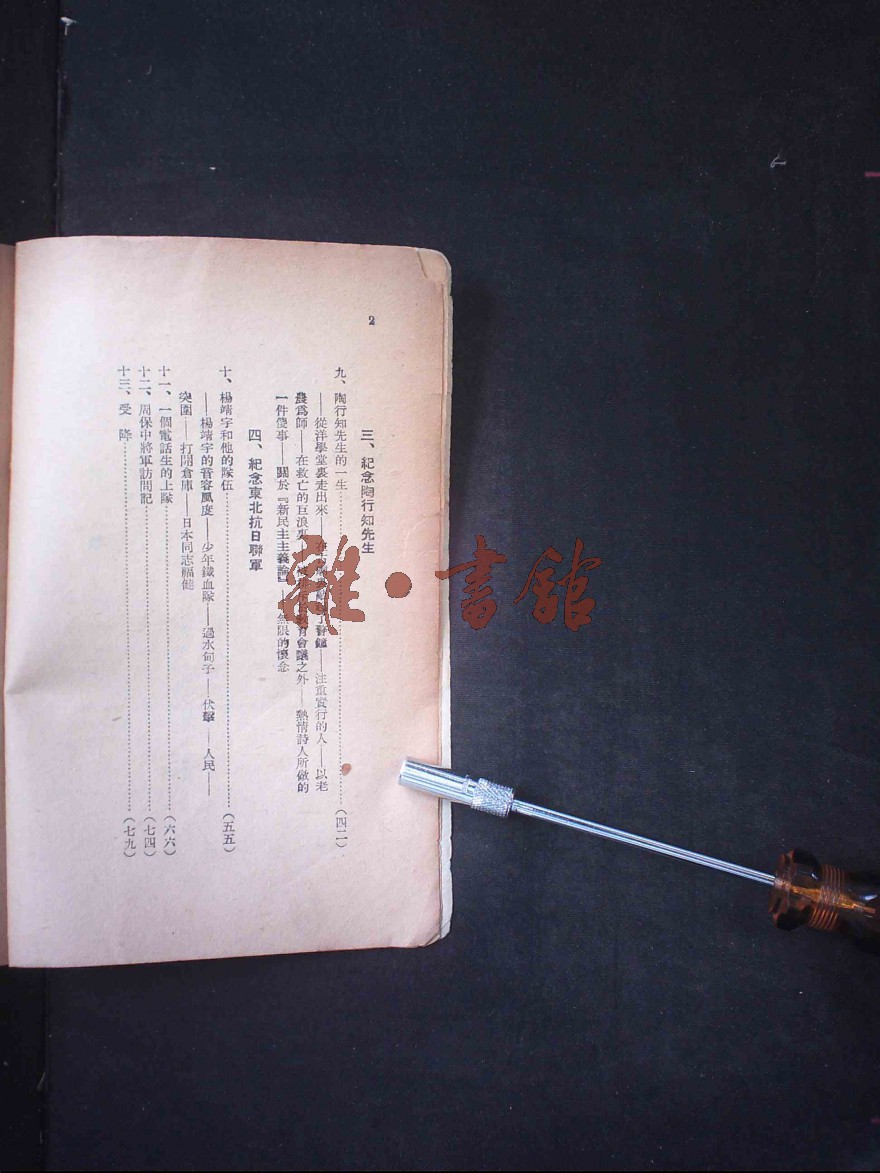 2
三、紀念陶行知先生
九、陶行知先生的一生……(四二)
——從洋學堂裏走出來——在——注重實行的人——以老
農爲師——在救亡的巨浪裏——教育會議之外——熱情詩人所做的
一件傻事——關於『新民主主義論』——無限的懷念
四、紀念東北抗日聯軍
十、楊靖宇和他的隊伍……(五五)
——楊靖宇的音容風度——少年鐵血隊——過水甸子——伏擊——人民——
突圍——打開倉庫——日本同志福健
十一、一個電話生的上隊……(六六)
十二、周保中將軍訪問記……(七四)
十三、受降……(七九)
雜·書館